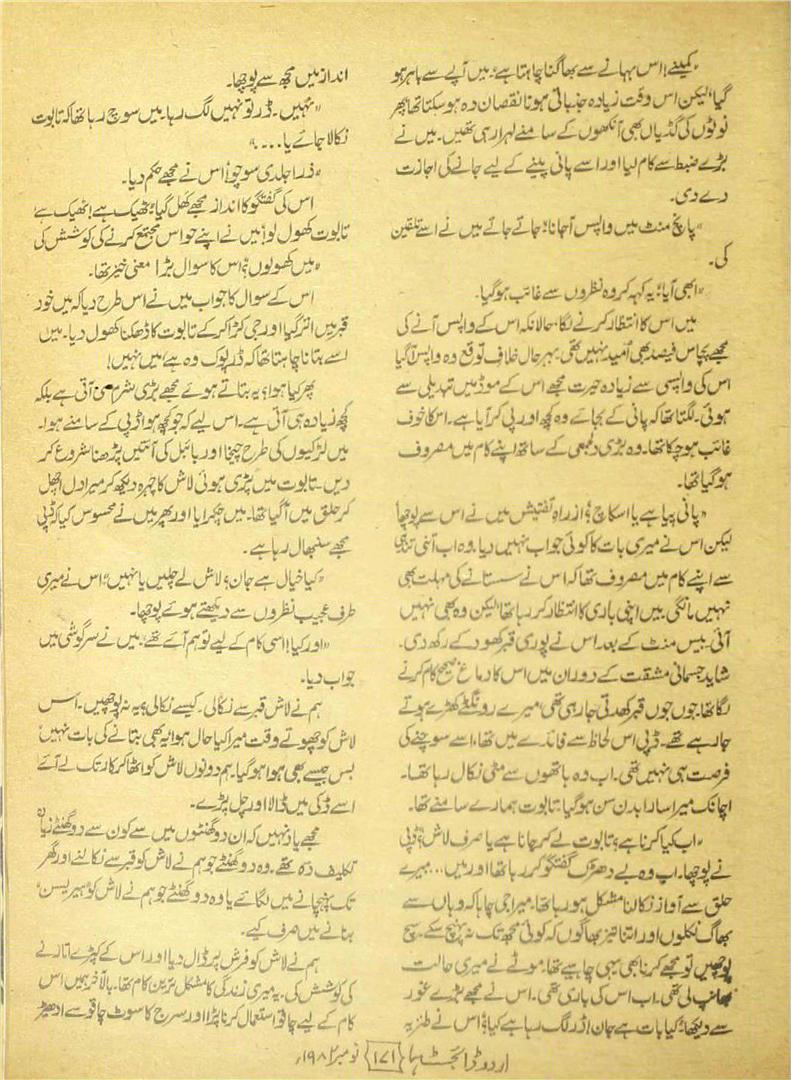 "کمینے! اس بہانے سے بھاگنا چاہتا ہے؛ میں آپے سے باہر ہو
گیا، لیکن اس وقت زیادہ جذباتی ہونا نقصان دہ ہو سکتا تھا پھر
نوٹوں کی گڈیاں بھی آنکھوں کے سامنے لہرا رہی تھیں۔ میں نے
بڑے ضبط سے کام لیا اور اسے پانی پینے کے لیے جانے کی اجازت
دے دی۔
"پانچ منٹ میں واپس آ جانا؛ جاتے جاتے میں نے اسے تلقین
کی۔
"ابھی آیا؛ یہ کہہ کر وہ نظروں سے غائب ہو گیا۔
میں اس کا انتظار کرنے لگا، حالانکہ اس کے واپس آنے کی
مجھے پچاس فیصد بھی اُمید نہیں تھی۔ بہرحال خلافِ توقع وہ واپس آ گیا
اس کی واپسی سے زیادہ حیرت مجھے اس کے موڈ میں تبدیلی سے
ہوئی۔ لگتا تھا کہ پانی کے بجائے وہ کچھ اور پی کر آیا ہے۔ اس کا خوف
غائب ہو چکا تھا۔ وہ بڑی دلجمعی کے ساتھ اپنے کام میں مصروف
ہو گیا تھا۔
"پانی پیا ہے یا اسکاچ؟ از راہِ تفتیش میں نے اس سے پوچھا
لیکن اس نے میری بات کا کوئی جواب نہیں دیا۔ وہ اب اتنی تندہی
سے اپنے کام میں مصروف تھا کہ اس نے سستانے کی مہلت بھی
نہیں مانگی۔ میں اپنی باری کا انتظار کر رہا تھا لیکن وہ بھی نہیں
آئی۔ بیس منٹ کے بعد اس نے پوری قبر کھود کے رکھ دی۔
شاید جسمانی مشقت کے دوران میں اس کا دماغ صحیح کام کرنے
لگا تھا۔ جوں جوں قبر کھدتی جا رہی تھی، میرے رونگٹے کھڑے ہوتے
جا رہے تھے۔ ڈپی اس لحاظ سے فائدے میں تھا، اسے سوچنے کی
فرصت ہی نہیں تھی۔ اب وہ ہاتھوں سے مٹی نکال رہا تھا۔
اچانک میرا سارا بدن سن ہو گیا، تابوت ہمارے سامنے تھا۔
"اب کیا کرنا ہے؟ تابوت لے کر جانا ہے یا صرف لاش؟ ڈپی
نے پوچھا۔ اب وہ بے دھڑک گفتگو کر رہا تھا اور میں... میرے
حلق سے آواز نکالنا مشکل ہو رہا تھا۔ میرا جی چاہا کہ وہاں سے
بھاگ نکلوں اور اتنا تیز بھاگوں کہ کوئی مجھ تک نہ پہنچ سکے۔ سچ
پوچھیں تو مجھے کرنا بھی یہی چاہیے تھا، موٹے نے میری حالت
بھانپ لی تھی۔ اب اس کی باری تھی۔ اس نے مجھے بڑے غور
سے دیکھا؛ کیا بات ہے جان! ڈر لگ رہا ہے کیا؟ اس نے طنزیہ
انداز میں مجھ سے پوچھا۔
"نہیں۔ ڈر تو نہیں لگ رہا۔ میں سوچ رہا تھا کہ تابوت
نکالا جائے یا...."
"ذرا جلدی سوچو! اس نے مجھے حکم دیا۔
اس کی گفتگو کا انداز مجھے کھل گیا؛ ٹھیک ہے! ٹھیک ہے!
تابوت کھول لو! میں نے اپنے حواس مجتمع کرنے کی کوشش کی
"میں کھولوں؟ اس کا سوال بڑا معنی خیز تھا۔
اس کے سوال کا جواب میں نے اس طرح دیا کہ میں خود
قبر میں اتر گیا اور جی کڑا کر کے تابوت کا ڈھکنا کھول دیا۔ میں
اسے بتانا چاہتا تھا کہ ڈرپوک وہ ہے، میں نہیں!
پھر کیا ہوا؟ یہ بتاتے ہوئے مجھے بڑی شرم سی آتی ہے بلکہ
کچھ زیادہ ہی آتی ہے۔ اس لیے کہ جو کچھ ہوا ڈپی کے سامنے ہوا۔
میں لڑکیوں کی طرح چیخا اور بائبل کی آیتیں پڑھنا شروع کر
دیں۔ تابوت میں پڑی ہوئی لاش کا چہرہ دیکھ کر میرا دل اچھل
کر حلق میں آ گیا تھا۔ میں چکرایا اور پھر میں نے محسوس کیا کہ ڈپی
مجھے سنبھال رہا ہے۔
"کیا خیال ہے جان؟ لاش لے چلیں یا نہیں؟ اس نے میری
طرف عجیب نظروں سے دیکھتے ہوئے پوچھا۔
"اور کیا! اسی کام کے لیے تو ہم آئے تھے؛ میں نے سرگوشی میں
جواب دیا۔
ہم نے لاش قبر سے نکالی۔ کیسے نکالی؟ یہ نہ پوچھیں۔ اس
لاش کو چھوتے وقت میرا کیا حال ہوا، یہ بھی بتانے کی بات نہیں
بس جیسے بھی ہوا ہو گیا۔ ہم دونوں لاش کو اٹھا کر کار تک لے آئے
اسے ڈکی میں ڈالا اور چل پڑے۔
مجھے یاد نہیں کہ ان دو گھنٹوں میں سے کون سے دو گھنٹے زیادہ
تکلیف دہ تھے۔ وہ دو گھنٹے جو ہم نے لاش کو قبر سے نکالنے اور گھر
تک پہنچانے میں لگائے یا وہ دو گھنٹے جو ہم نے لاش کو 'ہیریسن'
بنانے میں صرف کیے۔
ہم نے لاش کو فرش پر ڈال دیا اور اس کے کپڑے اتارنے
کی کوشش کی۔ یہ میری زندگی کا مشکل ترین کام تھا۔ بالآخر ہمیں اس
کام کے لیے چاقو استعمال کرنا پڑا اور سرج کا سوٹ چاقو سے ادھیڑ
اردو ڈائجسٹ ہما {۱۷۱} نومبر ۱۹۸۲ء